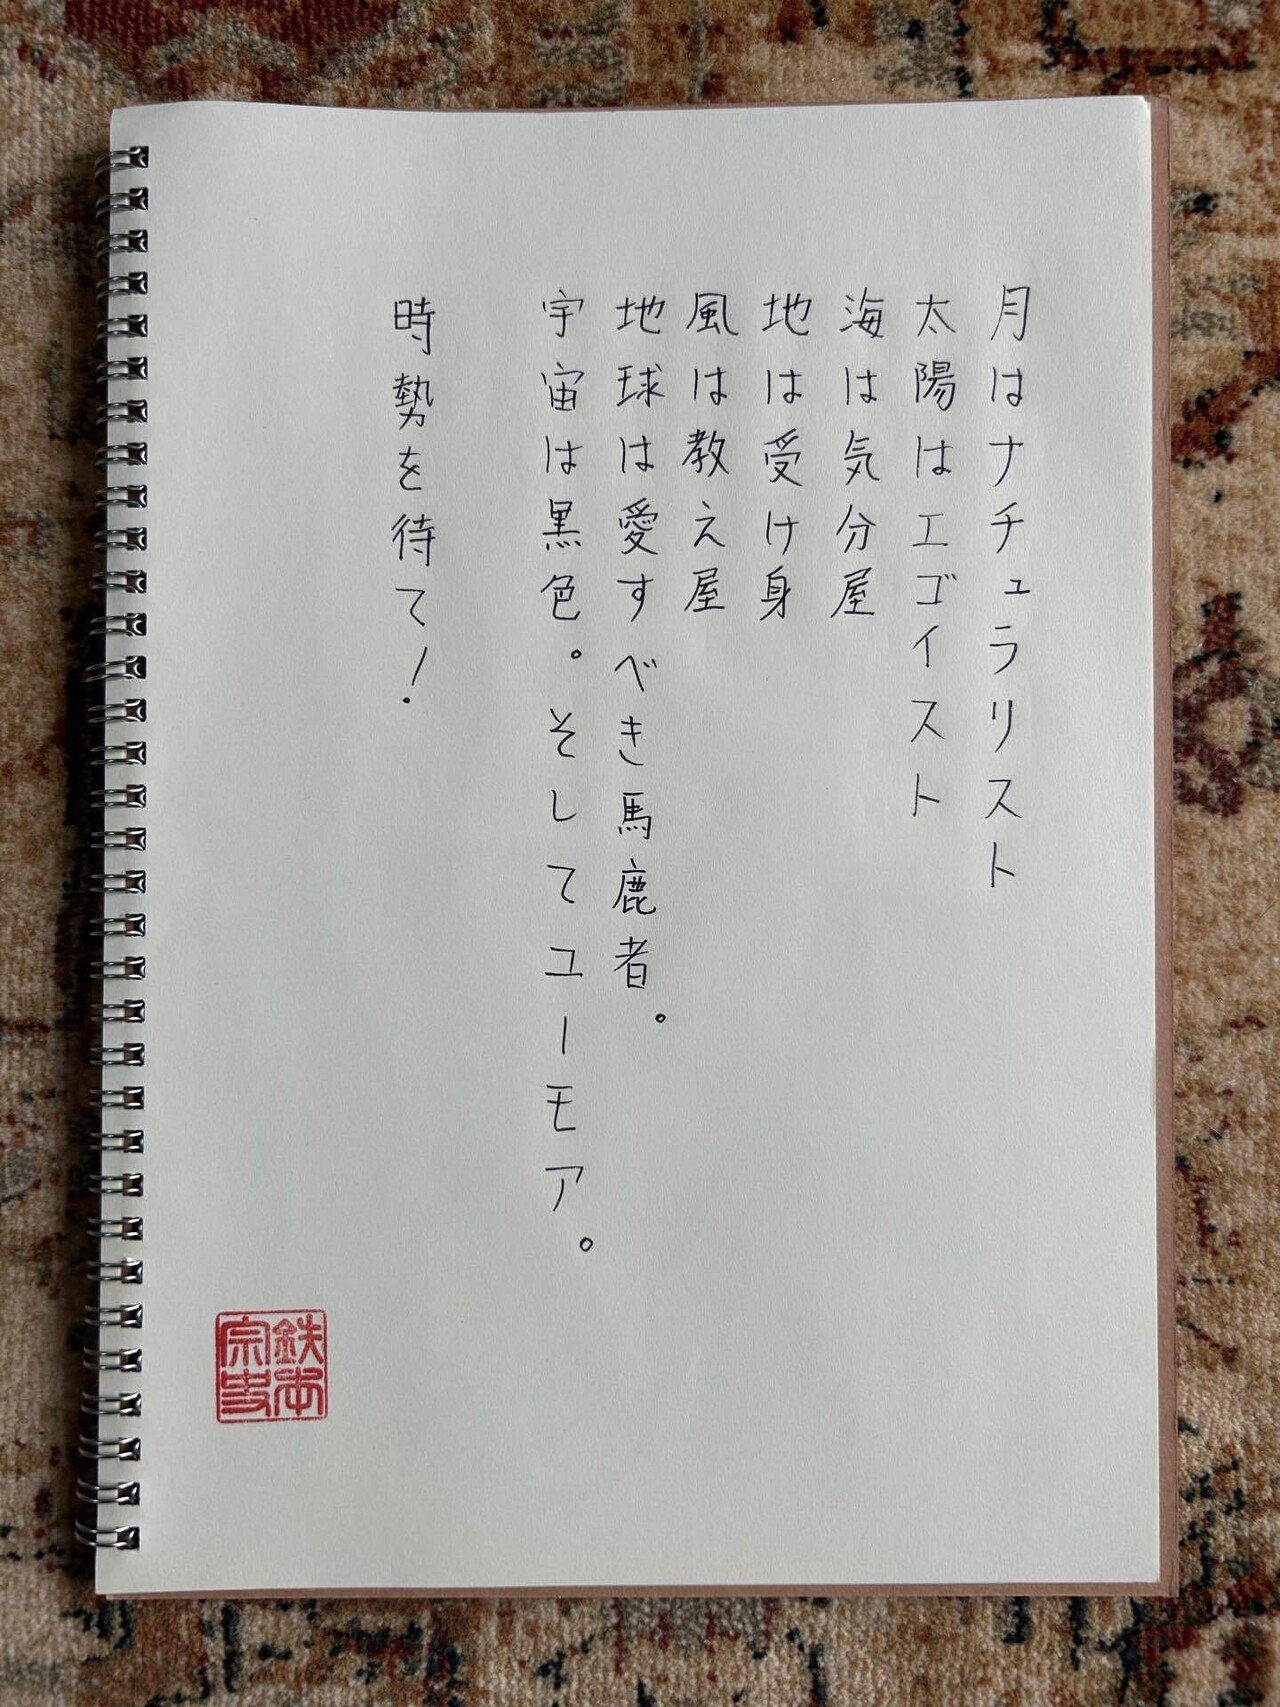 月はナチュラリスト
太陽はエゴイスト
海は気分屋
地は受け身
風は教え屋
地球は愛すべき馬鹿者。
宇宙は黒色。そしてユーモア。
時勢を待て!
鉄本
宗史